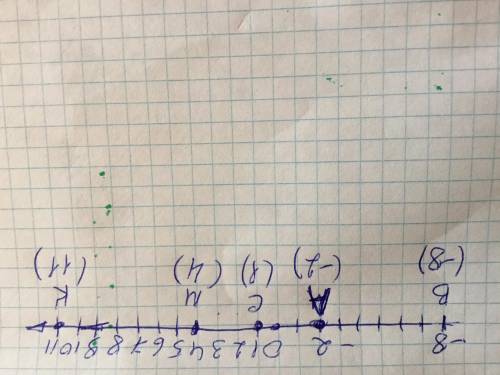 -8 -2 0 1 2 3 4 5 6 7 8 9 10 11
B A C M K
(-8) (-2) (1) (4) (11)